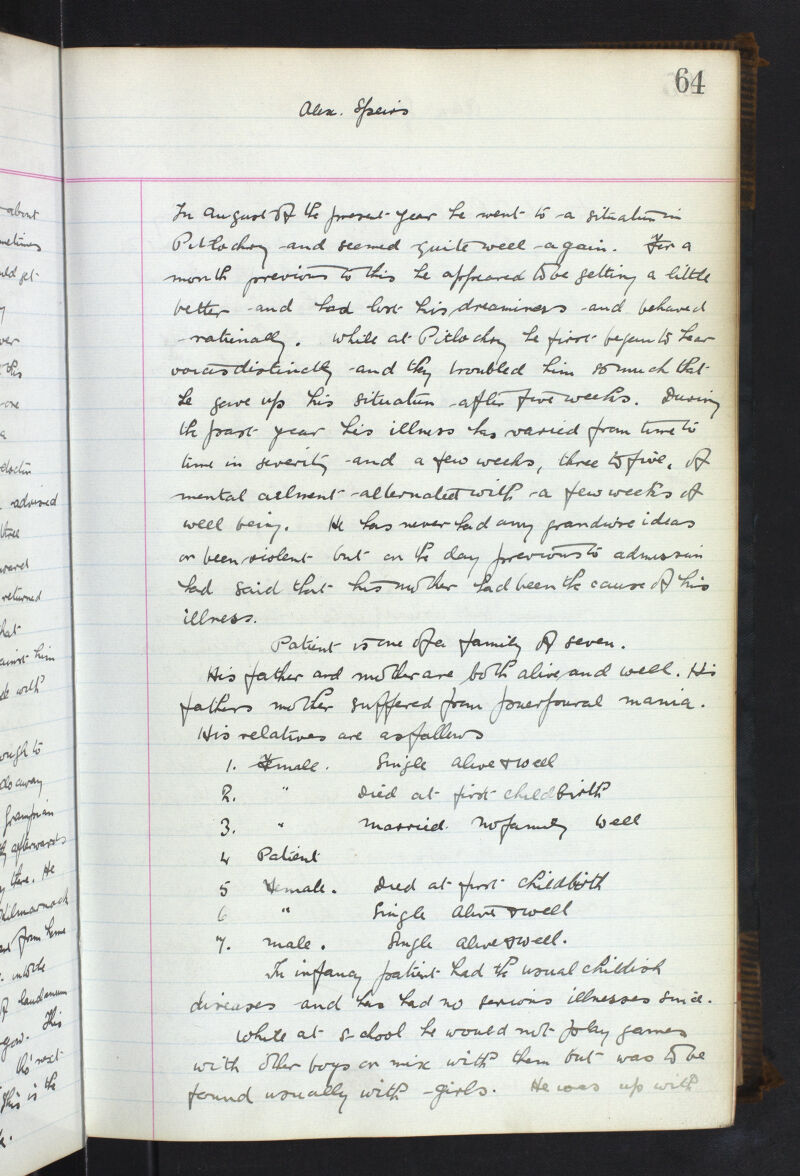 64
Alex. Speirs
In August of the present year he went to a situation in
Pitlochry and seemed quite well again. For a
month previous to this he appeared to be getting a little
better and had lost his dreaminess and behaved
rationally. While at Pitlochry he first began to hear
voices distinctly and they troubled him so much that
he gave up his situation after five weeks. During
the past year his illness has varied from time to
time in severity and a few weeks, three to five, of
mental ailment alternated with a few weeks of
well being. He has never had any grandiose ideas
or been violent but on the day previous to admission
had said that his mother had been the cause of his
illness.
Patient is one of a family of seven.
His father and mother are both alive and well. His
fathers mother suffered from puerpural mania.
His relatives are as follows
1. Female. Single alive & well
2. " Died at first childbirth
3. " Married. No family well
4 Patient
5 Female. Died at first childbirth
6 " Single alive & well
7. Male. Single alive & well.
In infancy patient had the usual childish
diseases and has had no serious illnesses since.
While at school he would not play games
with other boys or mix with them but was to be
found usually with girls. He was up with
about
get
this
advised
three
returned
him
with
to
away
afterwards
there. He
Kilmarnock
from home
of laudanum
His
next
this is the